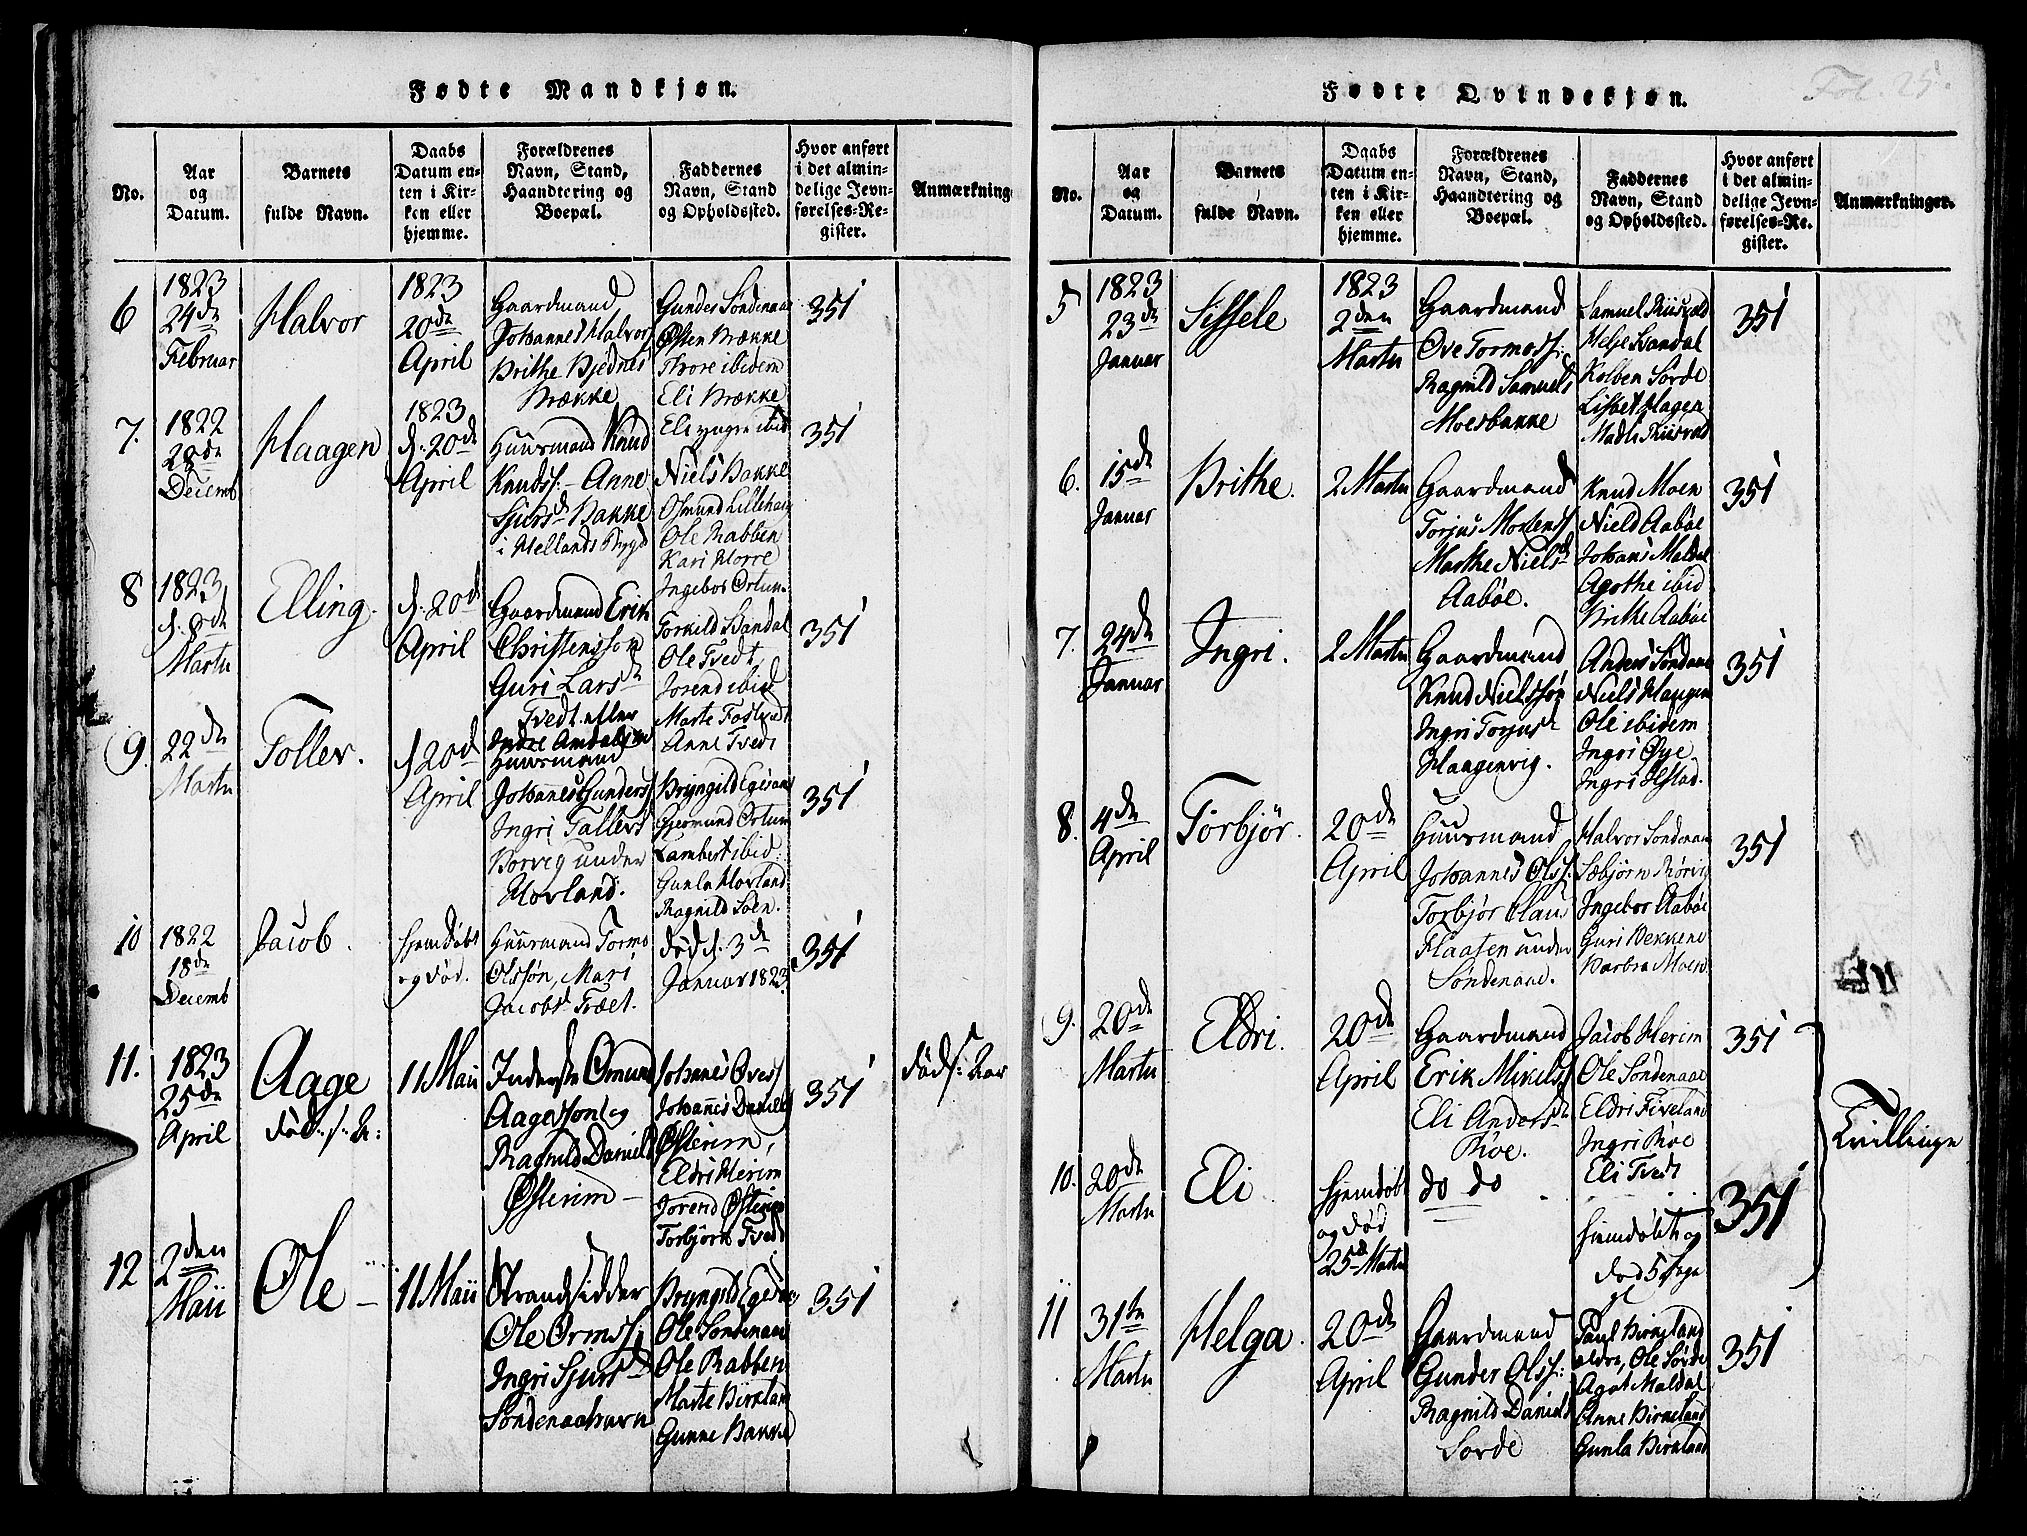 Fødte Mandkjøn.
No.
Aar
og
Datum.
Barnets
fulde Navn.
Daabs
Datum en-
ten i Kir-
ken eller
hjemme.
Forældrenes
Navn, Stand,
Haandtering og
Boepæl.
Faddernes
Navn, Stand
og Opholdssted.
Hvor anført
i det almin-
delige Jevn-
førelses-Re-
gister.
Anmærkning
6
1823
24de
Februar
Halvor
1823
20de
April
Gaardmand
Johannes Halvors
Brithe Bjednes
Brække
Gunder Søndenaae
Østen Brække
Thore ibidem
Eli Brække
Eli yngre ibid
351
7.
1822
28de
Decemb
Haagen
1823
d. 20de
April
Huusmand Knud
Knuds: - Anne
Sjursd Bakke
i Hellands Bygd
Niels Bakke
Osmund Lillehag
Ole Rabben
Kari Horre
Ingebor Ortun
351
8
1823
d. 8de
Martii
Elling.
d. 20de
April
Gaardmand Erik
Christensson
Guri Larsdt
Tvedt
Torkild Bandal
Ole Tvedt
Jorend ibid
Marte
Anne Tvedt
351
9.
22de
Martii
Toller.
d 20de
April
Huusmand
Johannes Gunders
Ingri Tallers
Borvig under
Hovland.
Bryngild Egeland
Gjermund Ortun
Lambert ibid:
Gunla Hovland
Ragnild Soen.
351
10
1822
18de
Decemb
Jacob.
hjemdøbt
og død.
Huusmand Tormo
Olssøn, Mari
Jacobsd Træet.
død d. 3de
Januar 1823.
351
11.
1823
25de
April
Aage
død s. A:
11 Maii
Inderste Omund
Aagesson og
Ragnild Daniels
Østerim -
Johannes Oves
Johannes Daniels
Østerim,
Eldri Herim
Jorend
Torbjørn Tvedt
351
død s: Aar
12
2den
Maii
Ole -
11 Maii
Strandsidder
Ole Orms:
Ingri Sjursd
Søndenaahavn
Bryngild Egeland
Ole Søndenaae
Ole Rabben
Marte Birkland
Gunne Bakke
351
Fødte Qvindekjøn.
Fol. 25.
No.
Aar
og
Datum.
Barnets
fulde Navn.
Daabs
Datum en-
ten i Kir-
ken eller
hjemme.
Forældrenes
Navn, Stand,
Haandtering og
Boepæl.
Faddernes
Navn, Stand
og Opholdssted.
Hvor anført
i det almin-
delige Jevn-
førelses-Re-
gister.
Anmærkninger.
5
1823
23de
Januar
Sissele
1823
2den
Martii
Gaardmand
Ove Tormods:
Ragnild Samuels
Moesbakke
Samuel
Helje Bandal
Kolben Sørde
Lisbet Hagen
351
6.
15de
Januar
Brithe.
2 Martii
Gaardmand
Torjus Mortens
Marthe Nielsd
Aabøe.
Knud Moen
Niels Aabøe
Johans Maldal
Agothe ibid
Brithe Aabøe
351
7.
24de
Januar
Ingri.
2 Martii
Gaardmand
Knud Nielssøn
Ingri Torjusd
Haagenvig.
Anders Søndenaae
Niels Haugen
Ole ibidem
Ingri Øye
Ingri Ølstad.
351
8.
4de
April
Torbjør.
20de
April
Huusmand
Johannes Ols:
Torbjør
Flaaten under
Søndenaae.
Halvor Søndenaae
Sebjørn Rørvig
Ingebor Aabøe
Guri Bekkene
Barbra Moen
351
9.
20de
Martii
Eldri.
20de
April
Gaardmand
Erik Mikels
Eli Andersdt
Røe.
Jacob Herim
Ole Søndenaae
Eldri Fiveland
Ingri Røe
Eli Tvedt
351
Tvillinge
10.
20de
Martii
Eli
hjemdøbt
og død
25de Martii
do do
hjemdøbt og
død 5 Dage
351
11
31te
Martii
Helga.
20de
April
Gaardmand
Gunder Ols:
Ragnild Daniels
Sørde
Paul Birkeland
ældre, Ole Sørde
Agot Maldal
Anne Birkeland
Gunla Birkeland
351